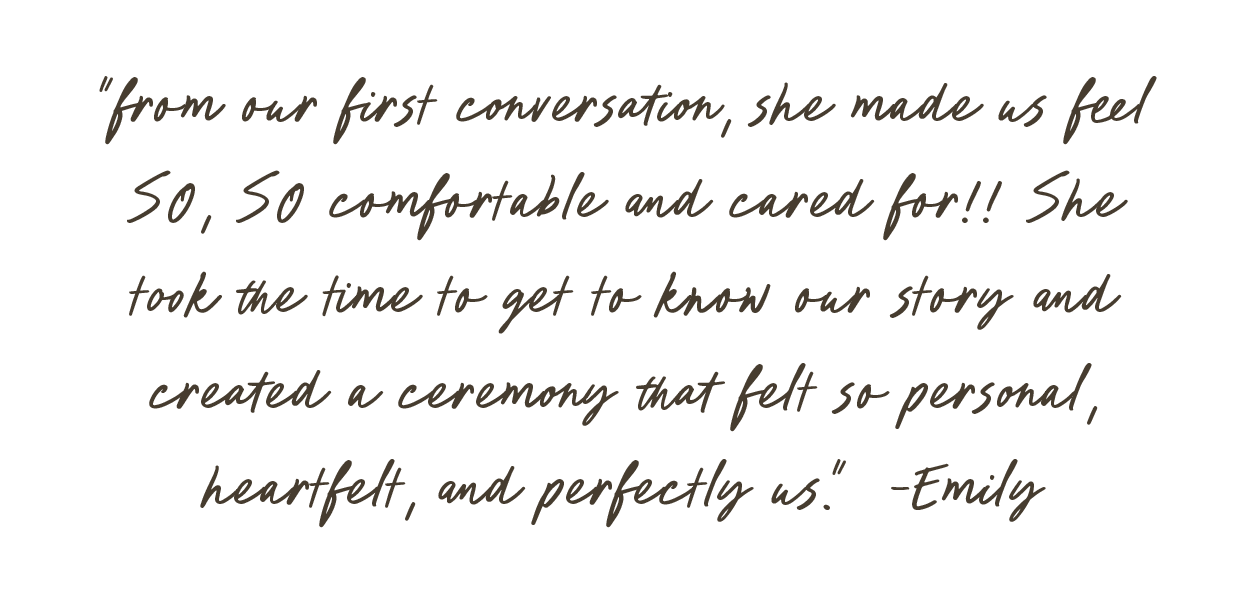 "from our first conversation, she made us feel
SO, SO comfortable and cared for!! She
took the time to get to know our story and
created a ceremony that felt so personal,
heartfelt, and perfectly us." -Emily